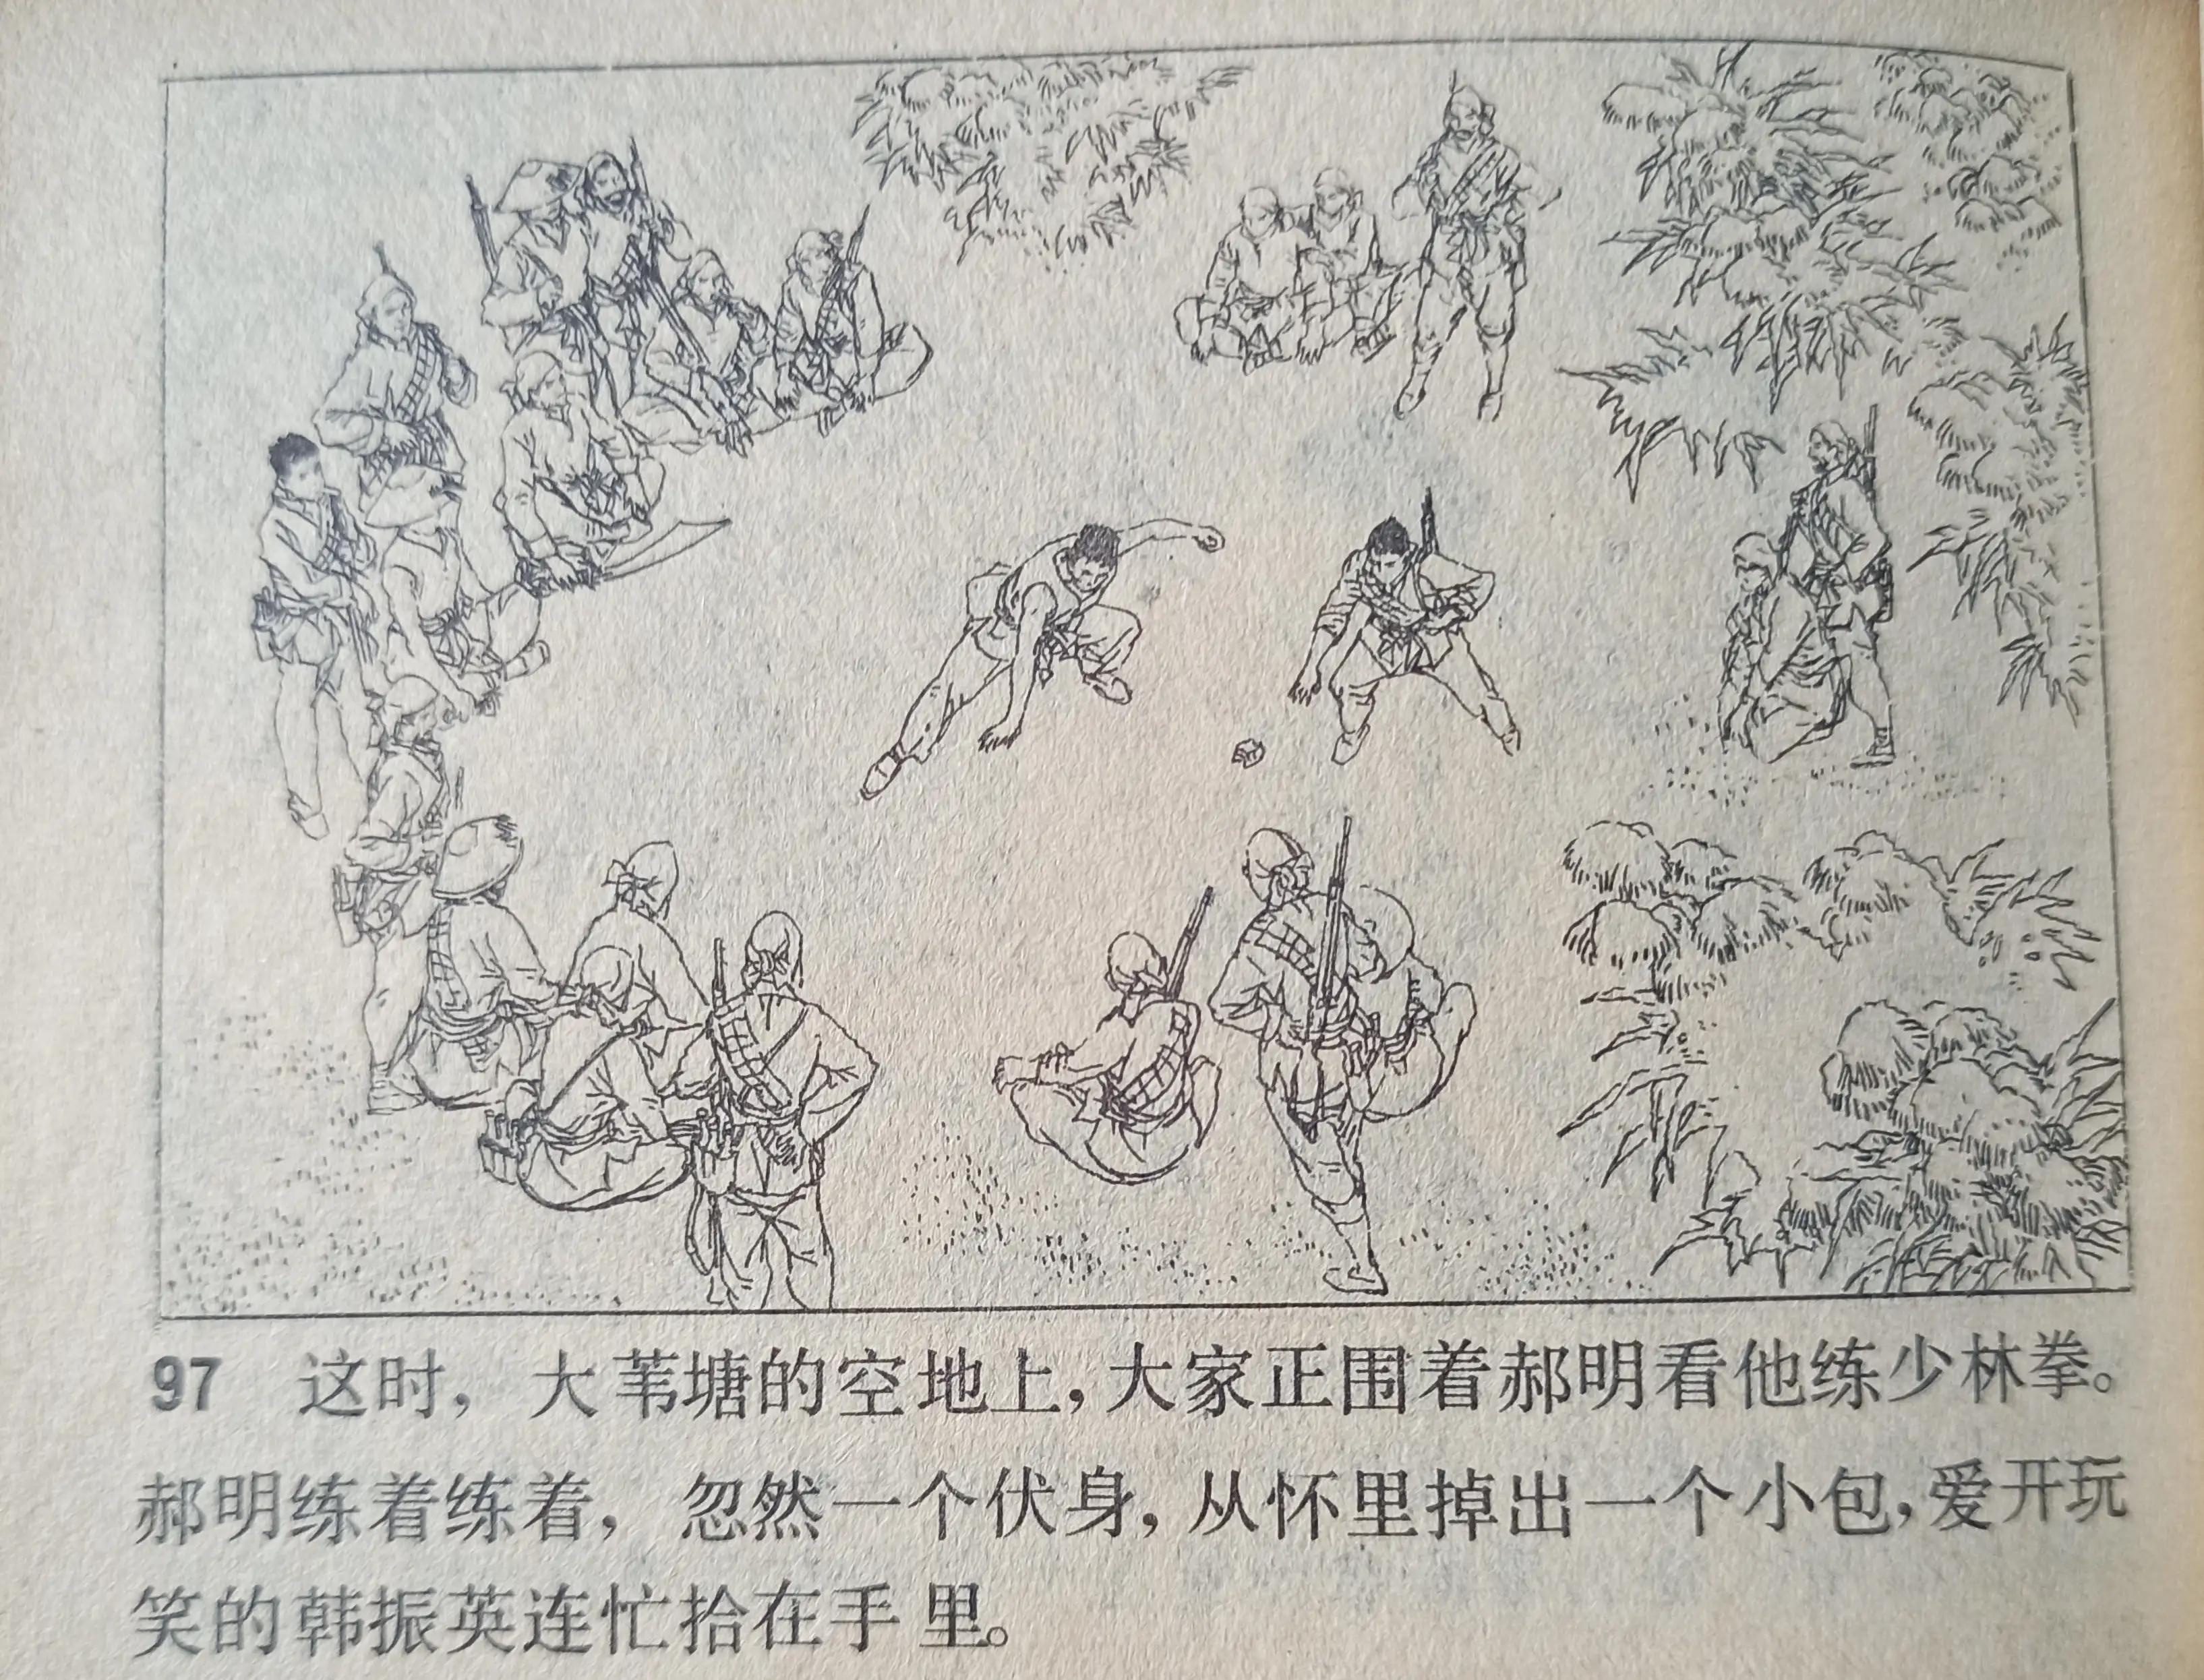 97 这时，大苇塘的空地上，大家正围着郝明看他练少林拳。
郝明练着练着，忽然一个伏身，从怀里掉出一个小包，爱开玩
笑的韩振英连忙拾在手里。